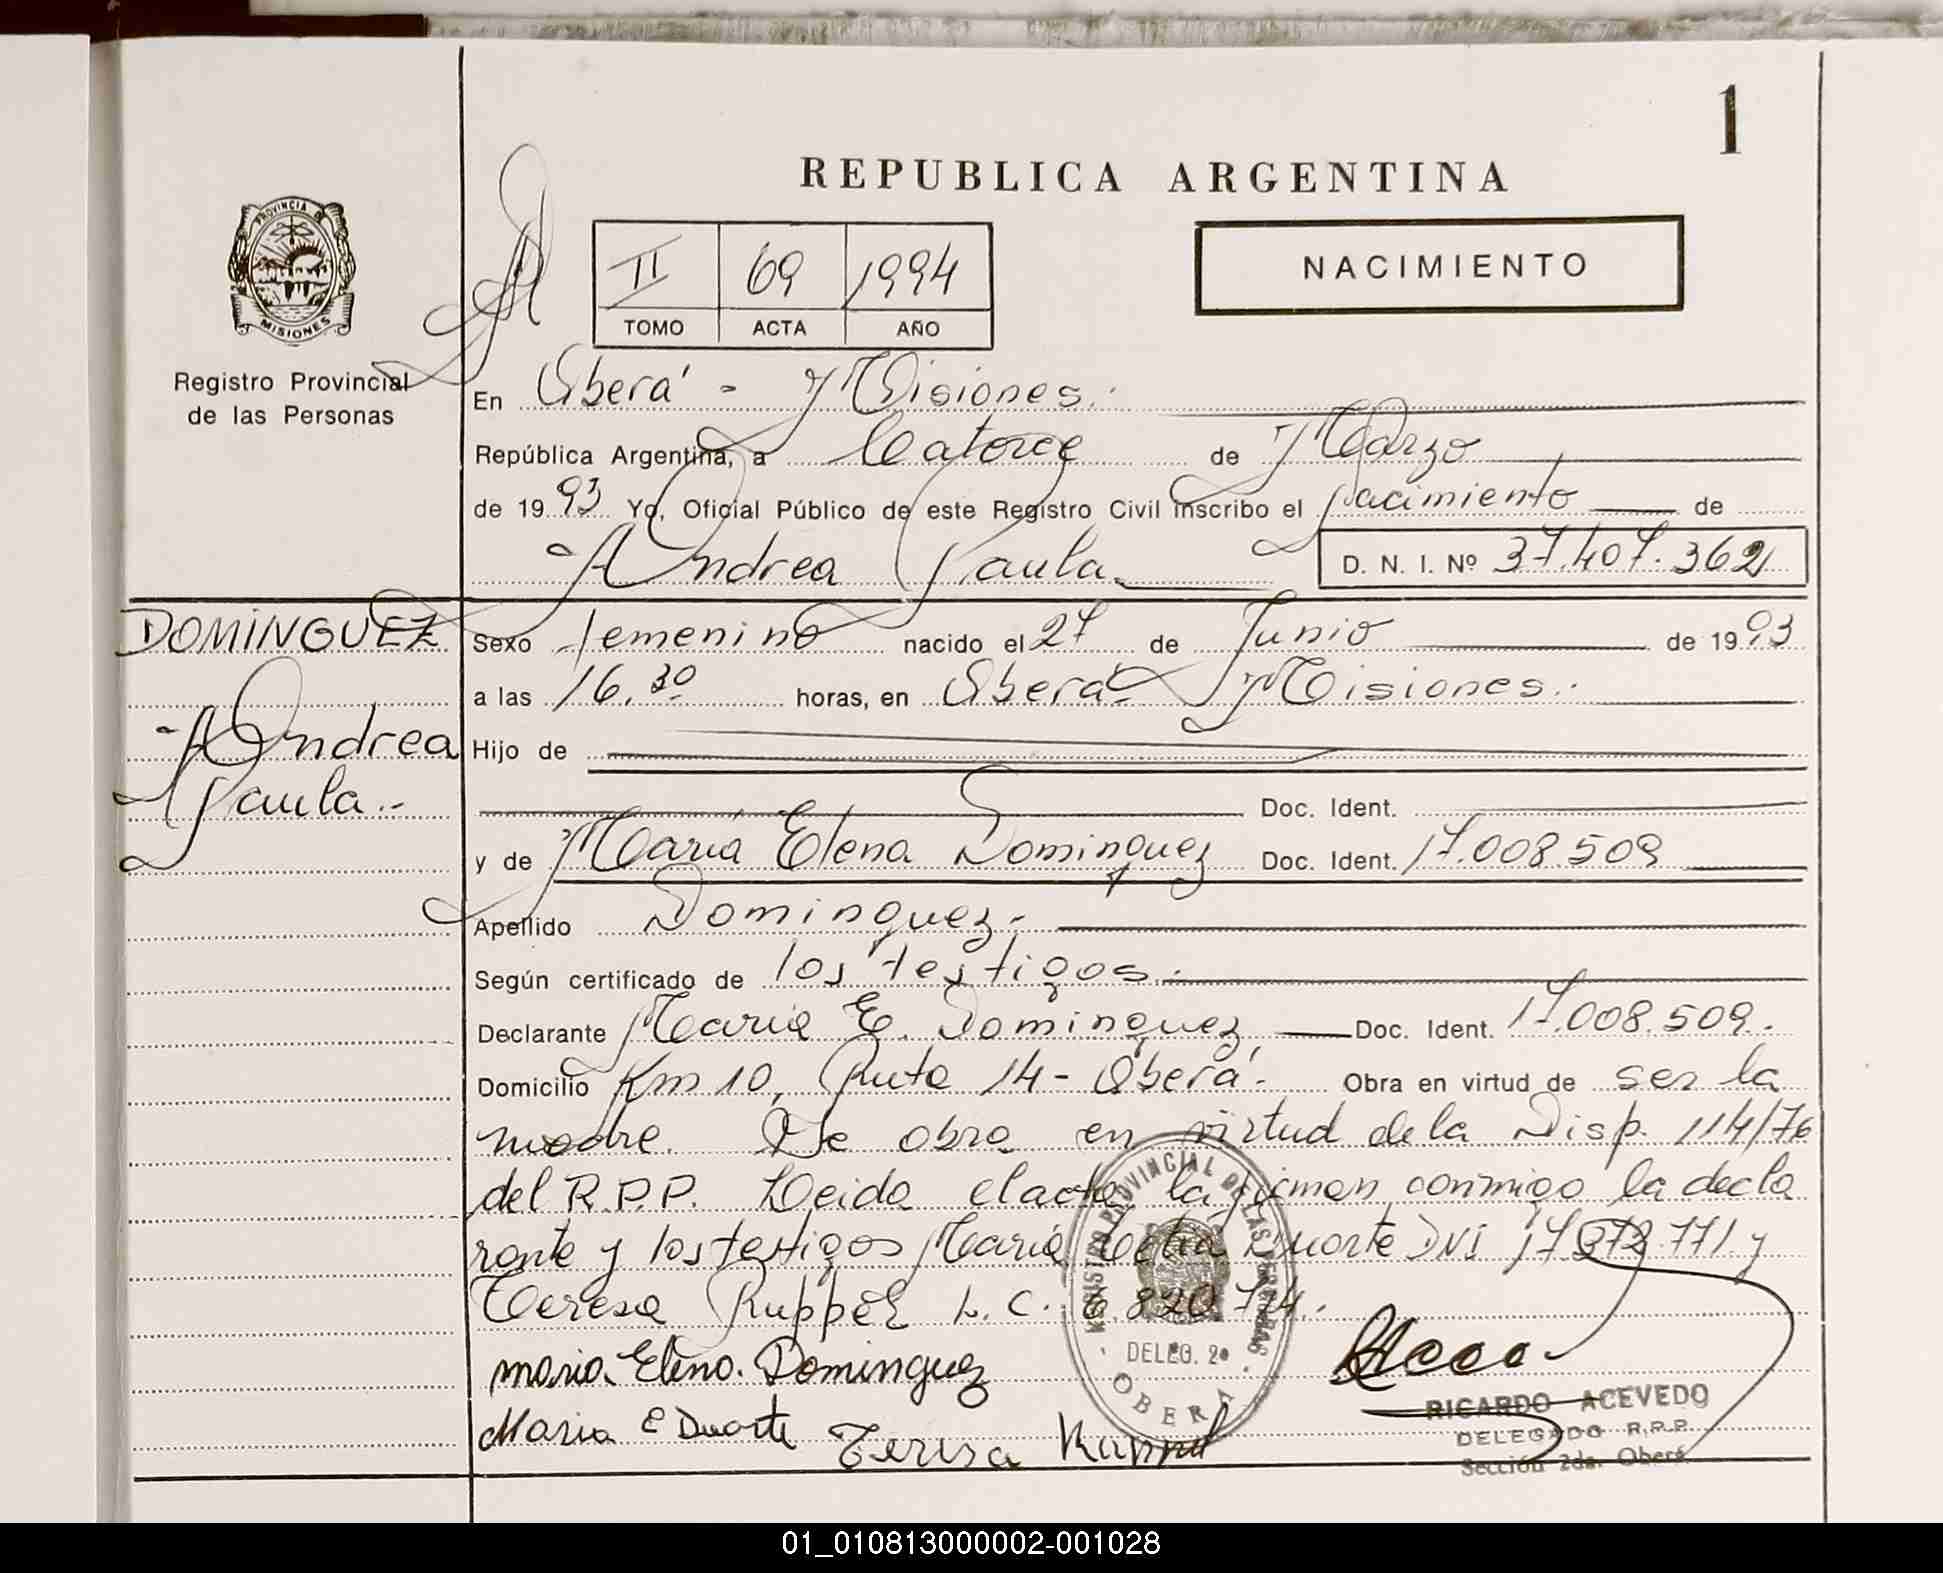 1
REPUBLICA ARGENTINA
PROVINCIA DE
MISIONES
Registro Provincial
de las Personas
II 69 1994
TOMO ACTA AÑO
NACIMIENTO
En Oberá - Misiones.
República Argentina, a Catorce de Marzo
de 1993 Yo, Oficial Público de este Registro Civil inscribo el nacimiento de
Andrea Paula D. N. I. Nº 37.407.362
DOMINGUEZ
Andrea
Paula.-
Sexo femenino nacido el 27 de Junio de 1993
a las 16.30 horas, en Oberá - Misiones.
Hijo de
Doc. Ident.
y de María Elena Dominguez Doc. Ident. 17.008.509
Apellido Dominguez.-
Según certificado de los testigos.-
Declarante María E. Dominguez Doc. Ident. 17.008.509.
Domicilio Km 10, Ruta 14 - Oberá.- Obra en virtud de ser la
madre. Se obra en virtud de la Disp. 114/76
del R.P.P. Leida el acta la firman conmigo la decla
rante y los testigos María Duarte DNI y
Teresa Ruppel L.C. 6.820.774.
Maria Elena Dominguez
Maria E Duarte Teresa Ruppel
REGISTRO PROVINCIAL DE LAS PERSONAS
DELEG. 2ª
OBERA
RICARDO ACEVEDO
DELEGADO R.P.P.
Sección 2da. Oberá
01_010813000002-001028